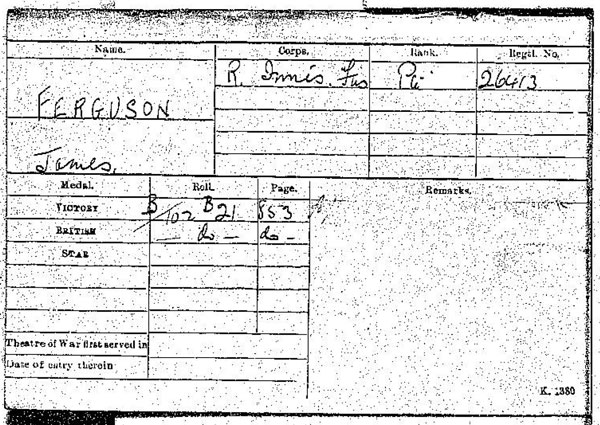 Name. Corps. Rank. Regtl. No.
R. Innis. Fus Pte 26413
FERGUSON
James.
Medal. Roll. Page. Remarks.
VICTORY B/102 B21 853
BRITISH — do — do —
STAR
Theatre of War first served in
Date of entry therein
K. 1380